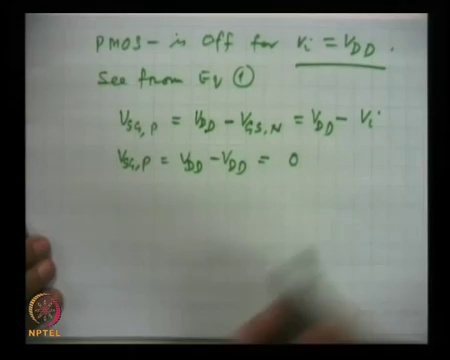 PMOS - is Off for Vi = VDD.
See from Ev ①
VSG,P = VDD - VGS,N = VDD - Vi
VSG,P = VDD - VDD = 0
NPTEL